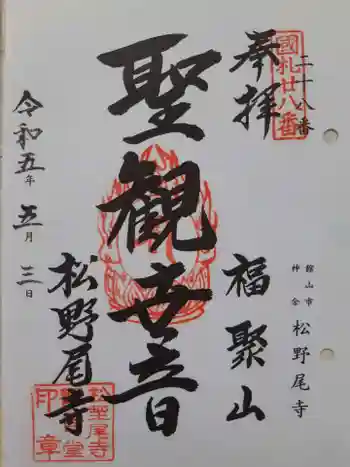 奉拝
國札廿八番
二十八番
館山市
神余
松野尾寺
福聚山
聖観世音
松野尾寺
令和五年五月三日
松野尾寺
印章